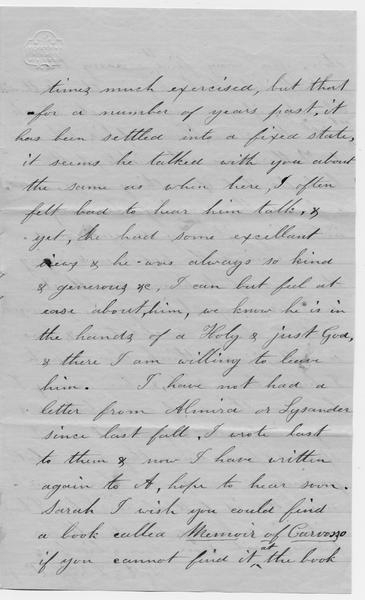 times much exercised, but that
for a number of years past, it
has been settled into a fixed state,
it seems he talked with you about
the same as when here, I often
felt bad to hear him talk, &
yet, he had some excillant
views & he was always so kind
& generous &c, I can but feel at
ease about him, we know he is in
the hands of a Holy & just God,
& there I am willing to leave
him. I have not had a
letter from Almira or Lysander
since last fall, I wrote last
to them & now I have written
again to A, hope to hear soon.
Sarah I wish you could find
a book called Memoir of Carvosso
if you cannot find it at the book